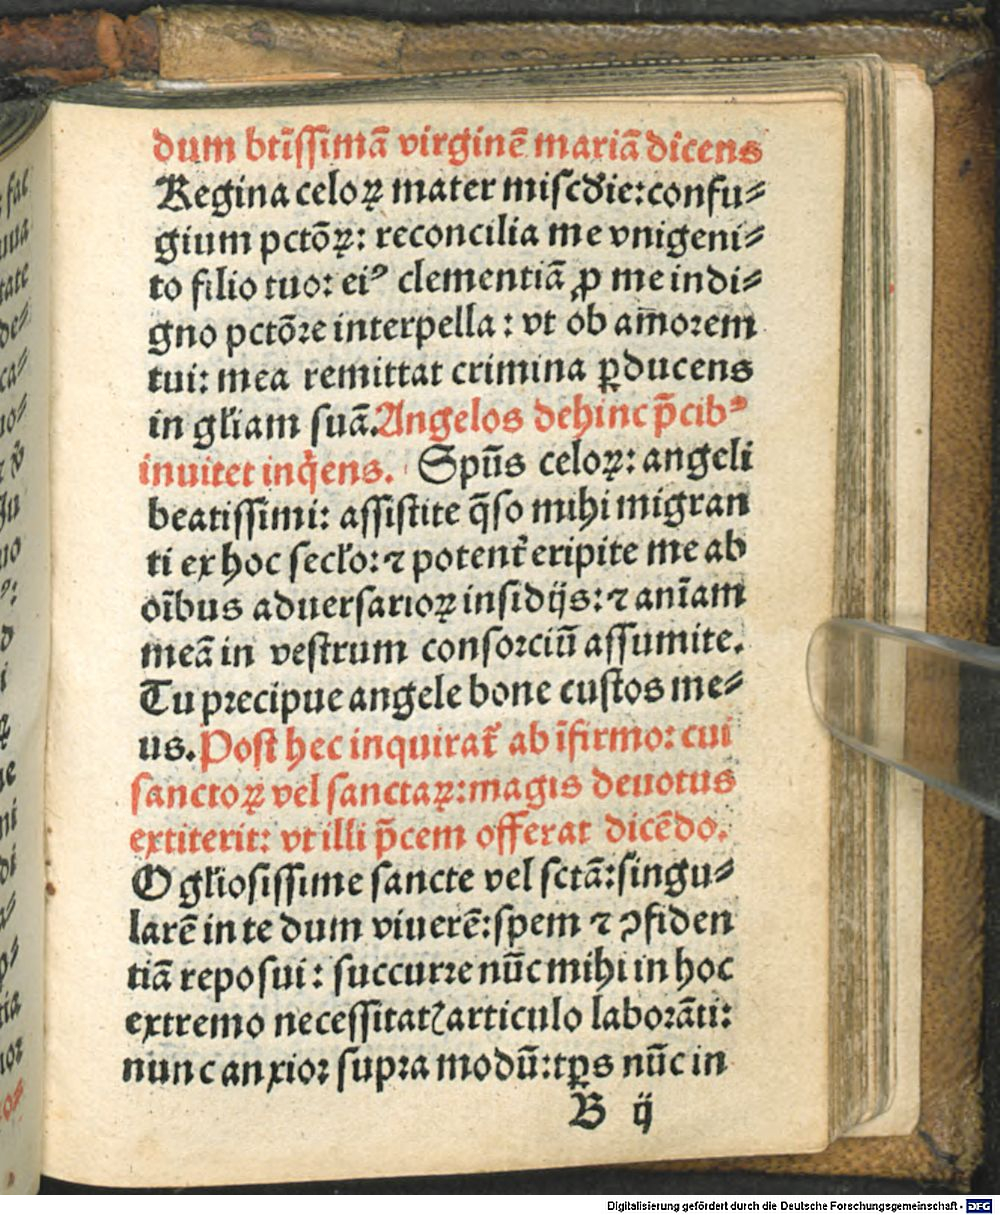 dum btīssimā virginē mariā dicens
Regina celoꝝ mater miscdie:confu⸗
gium pctōꝝ: reconcilia me vnigeni⸗
to filio tuo: eiꝰ clementiā ꝓ me indi⸗
gno pctōꝛe interpella: vt ob am̄oꝛem
tui: mea remittat crimina ꝑducens
in gl̄iam suā. Angelos dehinc p̄cibꝰ
inuitet inq̄ens. Spūs celoꝝ: angeli
beatissimi: assistite q̄so mihi migran
ti ex hoc secl̄o: ⁊ potent̄ eripite me ab
oībus aduersarioꝝ insidijs: ⁊ anīam
meā in vestrum consoꝛciū assumite.
Tu pꝛecipue angele bone custos me⸗
us. Post hec inquirat̄ ab īfirmo: cui
sanctoꝝ vel sanctaꝝ: magis deuotus
extiterit: vt illi p̄cem offerat dicēdo.
O gl̄iosissime sancte vel sctā: singu⸗
larē in te dum viuerē: spem ⁊ ꝯfiden
tiā reposui: succurre nūc mihi in hoc
extremo necessitatꝭ articulo laboꝛāti:
nunc anxioꝛ supꝛa modū: tꝑs nūc in
B ij
Digitalisierung gefördert durch die Deutsche Forschungsgemeinschaft - DFG